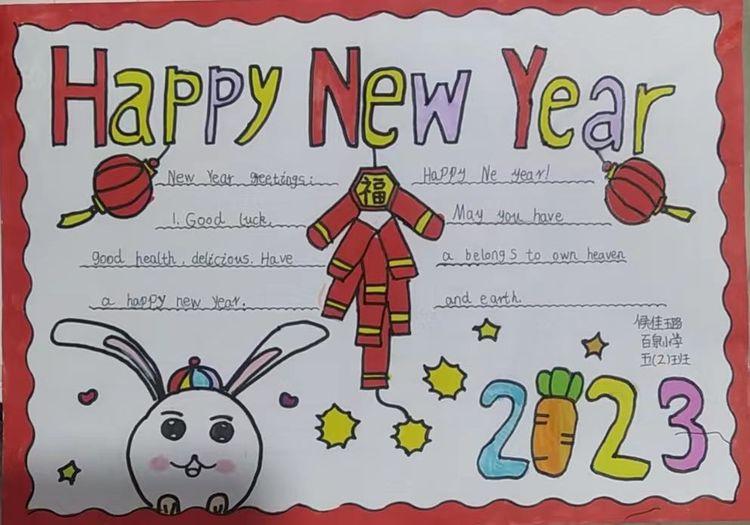 Happy New Year
福
New Year greetings:
1. Good luck,
good health, delicious. Have
a happy new year.
Happy Ne year!
May you have
a belongs to own heaven
and earth
侯佳璐
百泉小学
五(2)班
2023